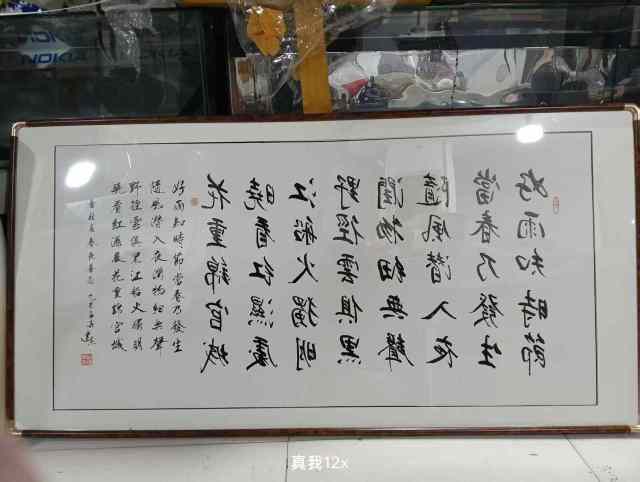 好雨知時節
當春乃發生
隨風潛入夜
潤物細無聲
野徑雲俱黑
江船火獨明
曉看紅濕處
花重錦官城
好雨知時節當春乃發生
隨風潛入夜潤物細無聲
野徑雲俱黑江船火獨明
曉看紅濕處花重錦官城
杜甫春夜喜雨
真我12x